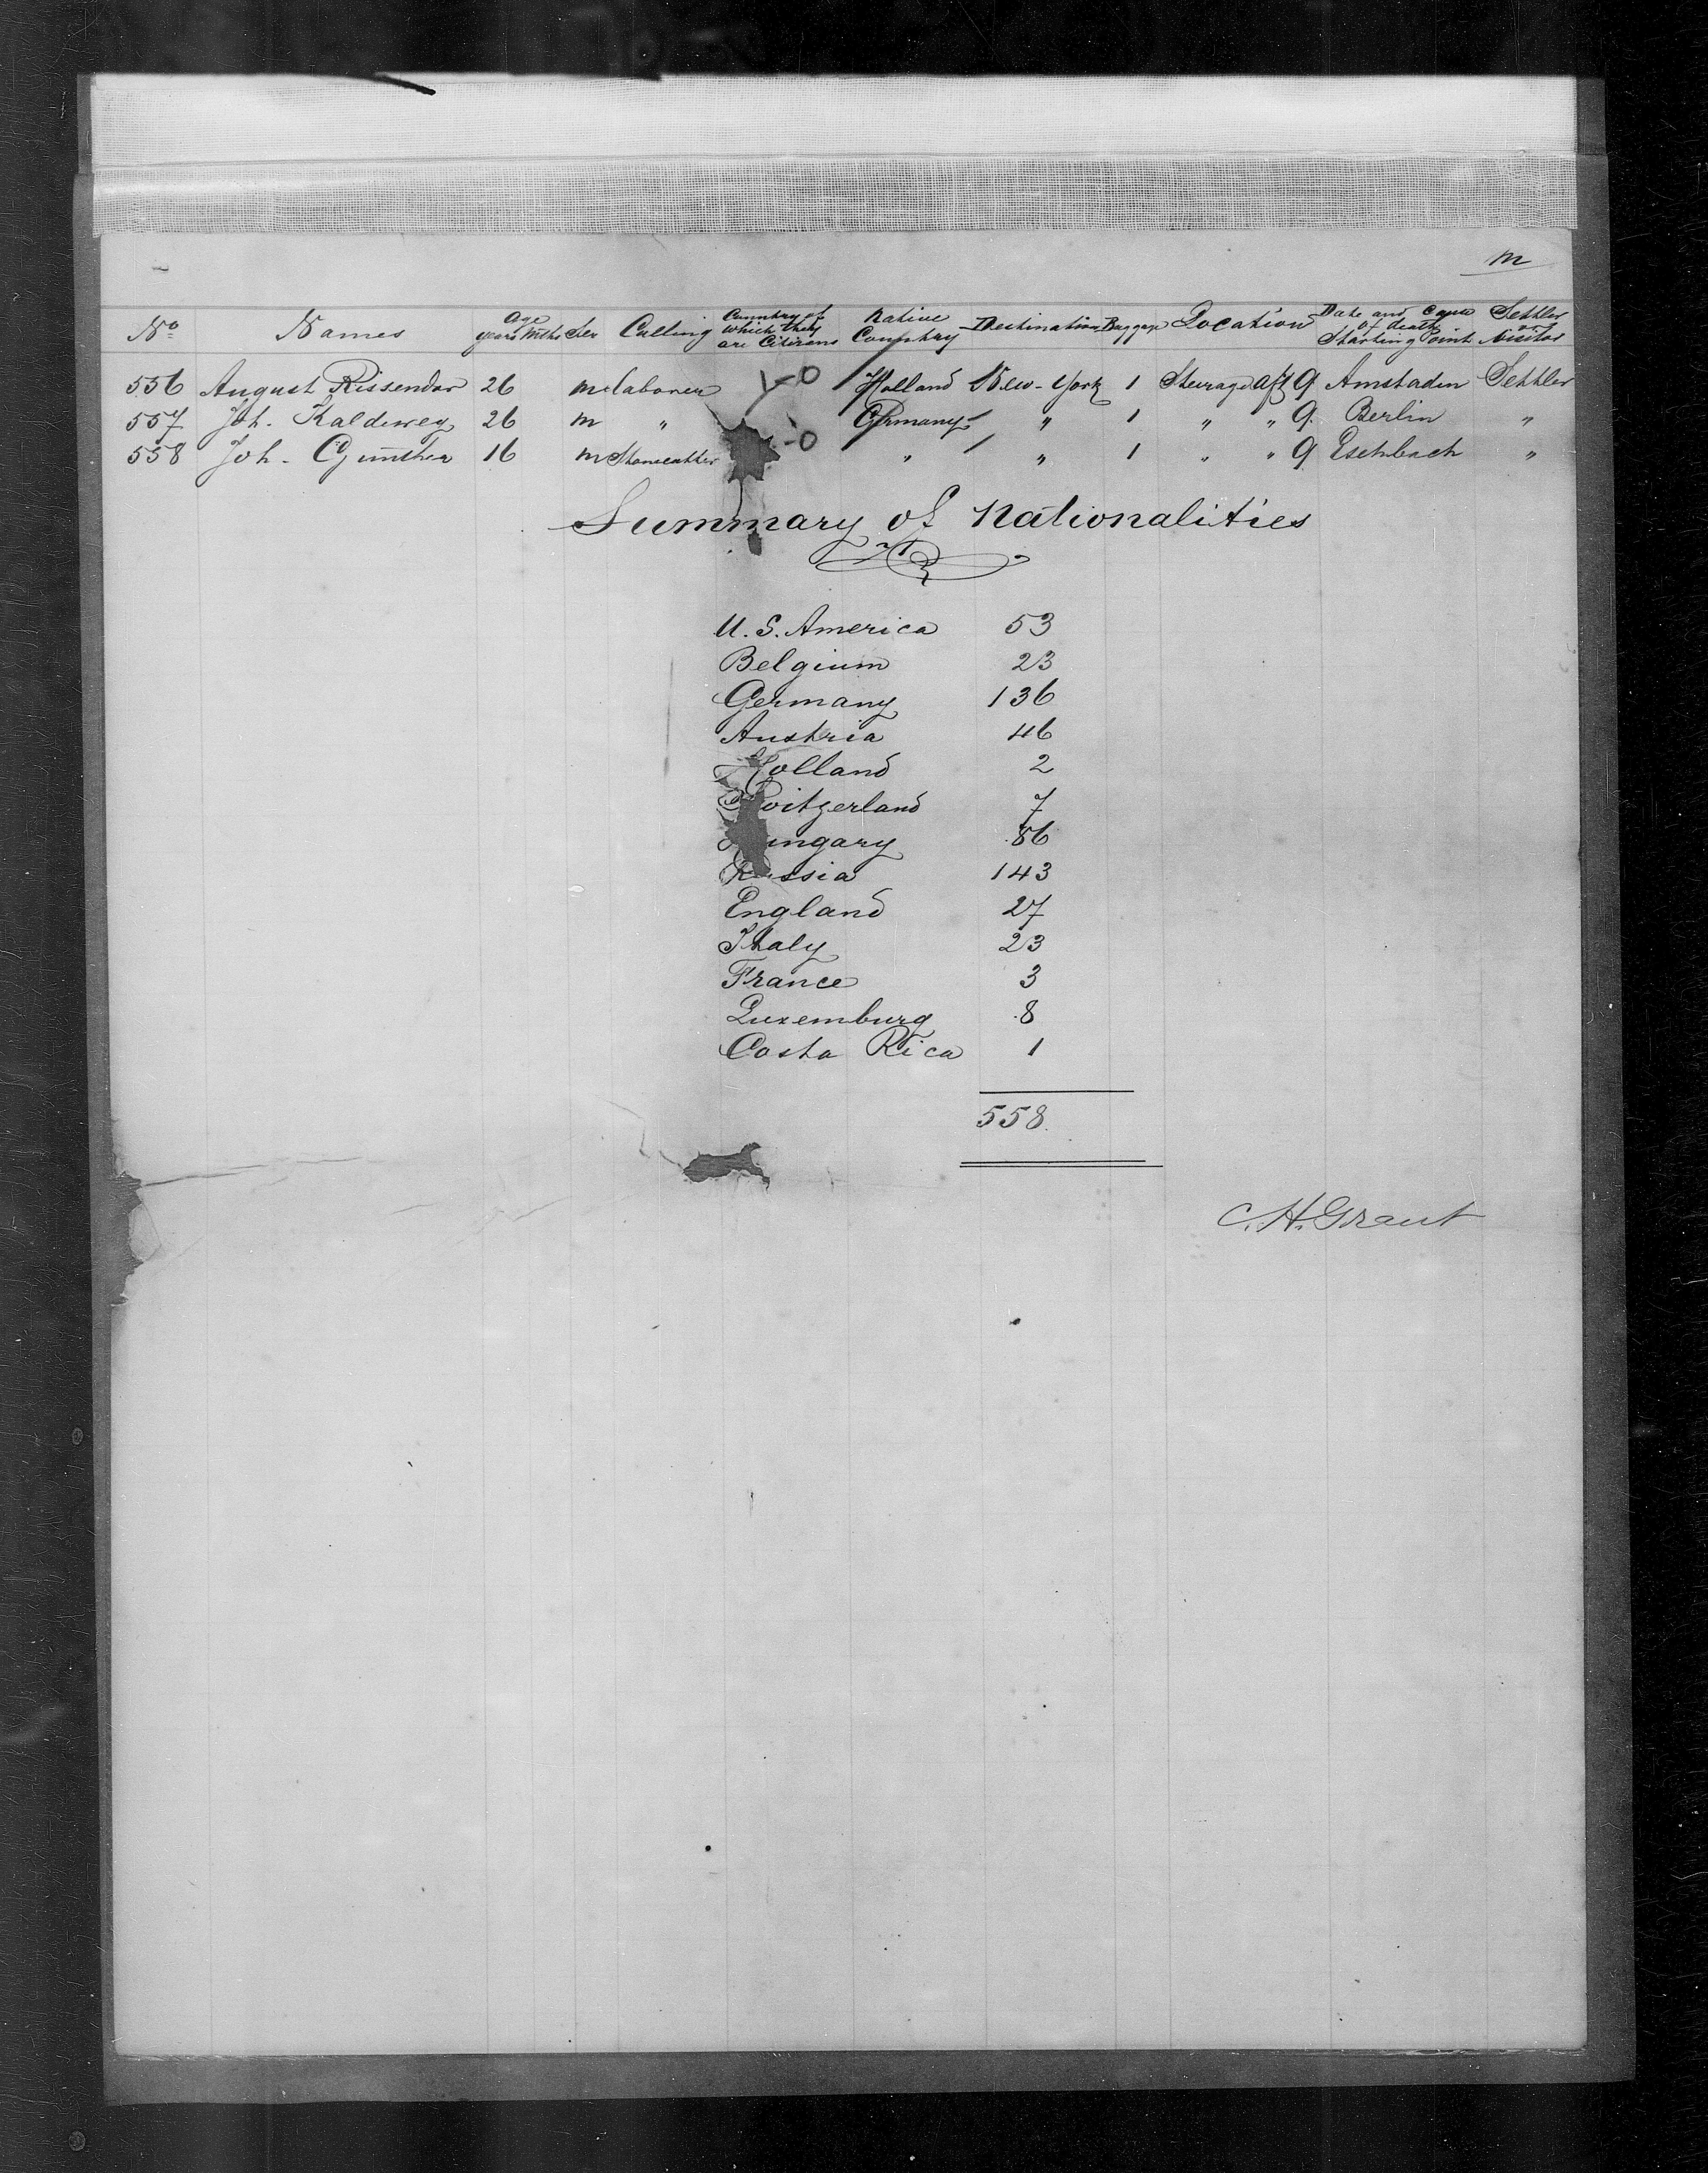 m
No Names Age years Mths Sex Calling Country of which they are Citizens Native Country Destination Baggage Location Date and Cause of death Starting Point Settler or Visitor
556 August Rissendor 26 m laborer Holland New-York 1 Steerage aft 9 Amstaden Settler
557 Joh. Kaldewey 26 m " Germany " 1 " " 9. Berlin "
558 Joh. Günther 16 m Stonecutter " " 1 " " 9 Eschbach "
Summary of Nationalities
U. S. America 53
Belgium 23
Germany 136
Austria 46
Holland 2
Switzerland 7
Hungary 86
Russia 143
England 27
Italy 23
France 3
Luxemburg 8
Costa Rica 1
558.
C. H. Grant